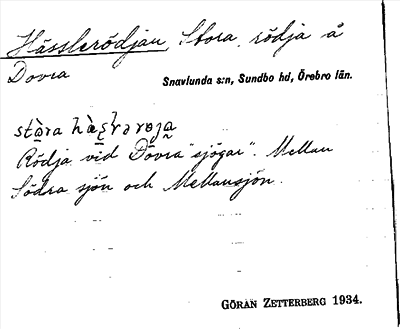 Hässlerödjan, Stora, rödja å
Dovra
Snavlunda s:n, Sundbo hd, Örebro län.
Rödja vid Dovra "sjögar". Mellan
Södra sjön och Mellansjön.
GÖRAN ZETTERBERG 1934.